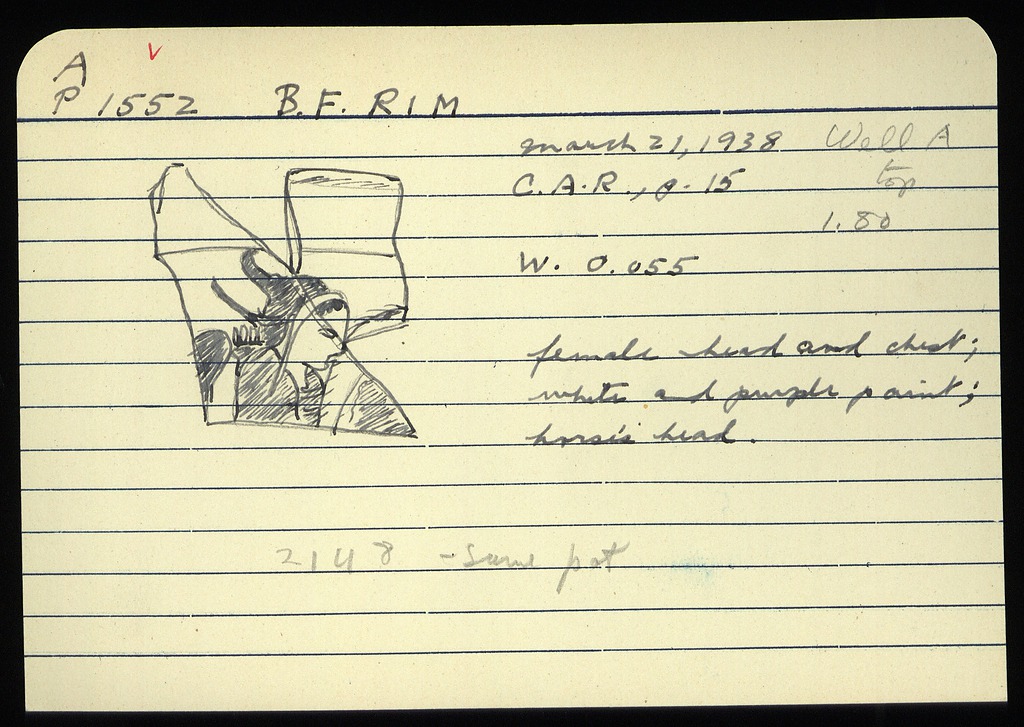 A ✓
P 1552 B.F. RIM
march 21, 1938 Well A
C.A.R., p. 15 top
1.80
W. 0.055
female head and chest;
white and purple paint;
horse's head.
2148 - same pot